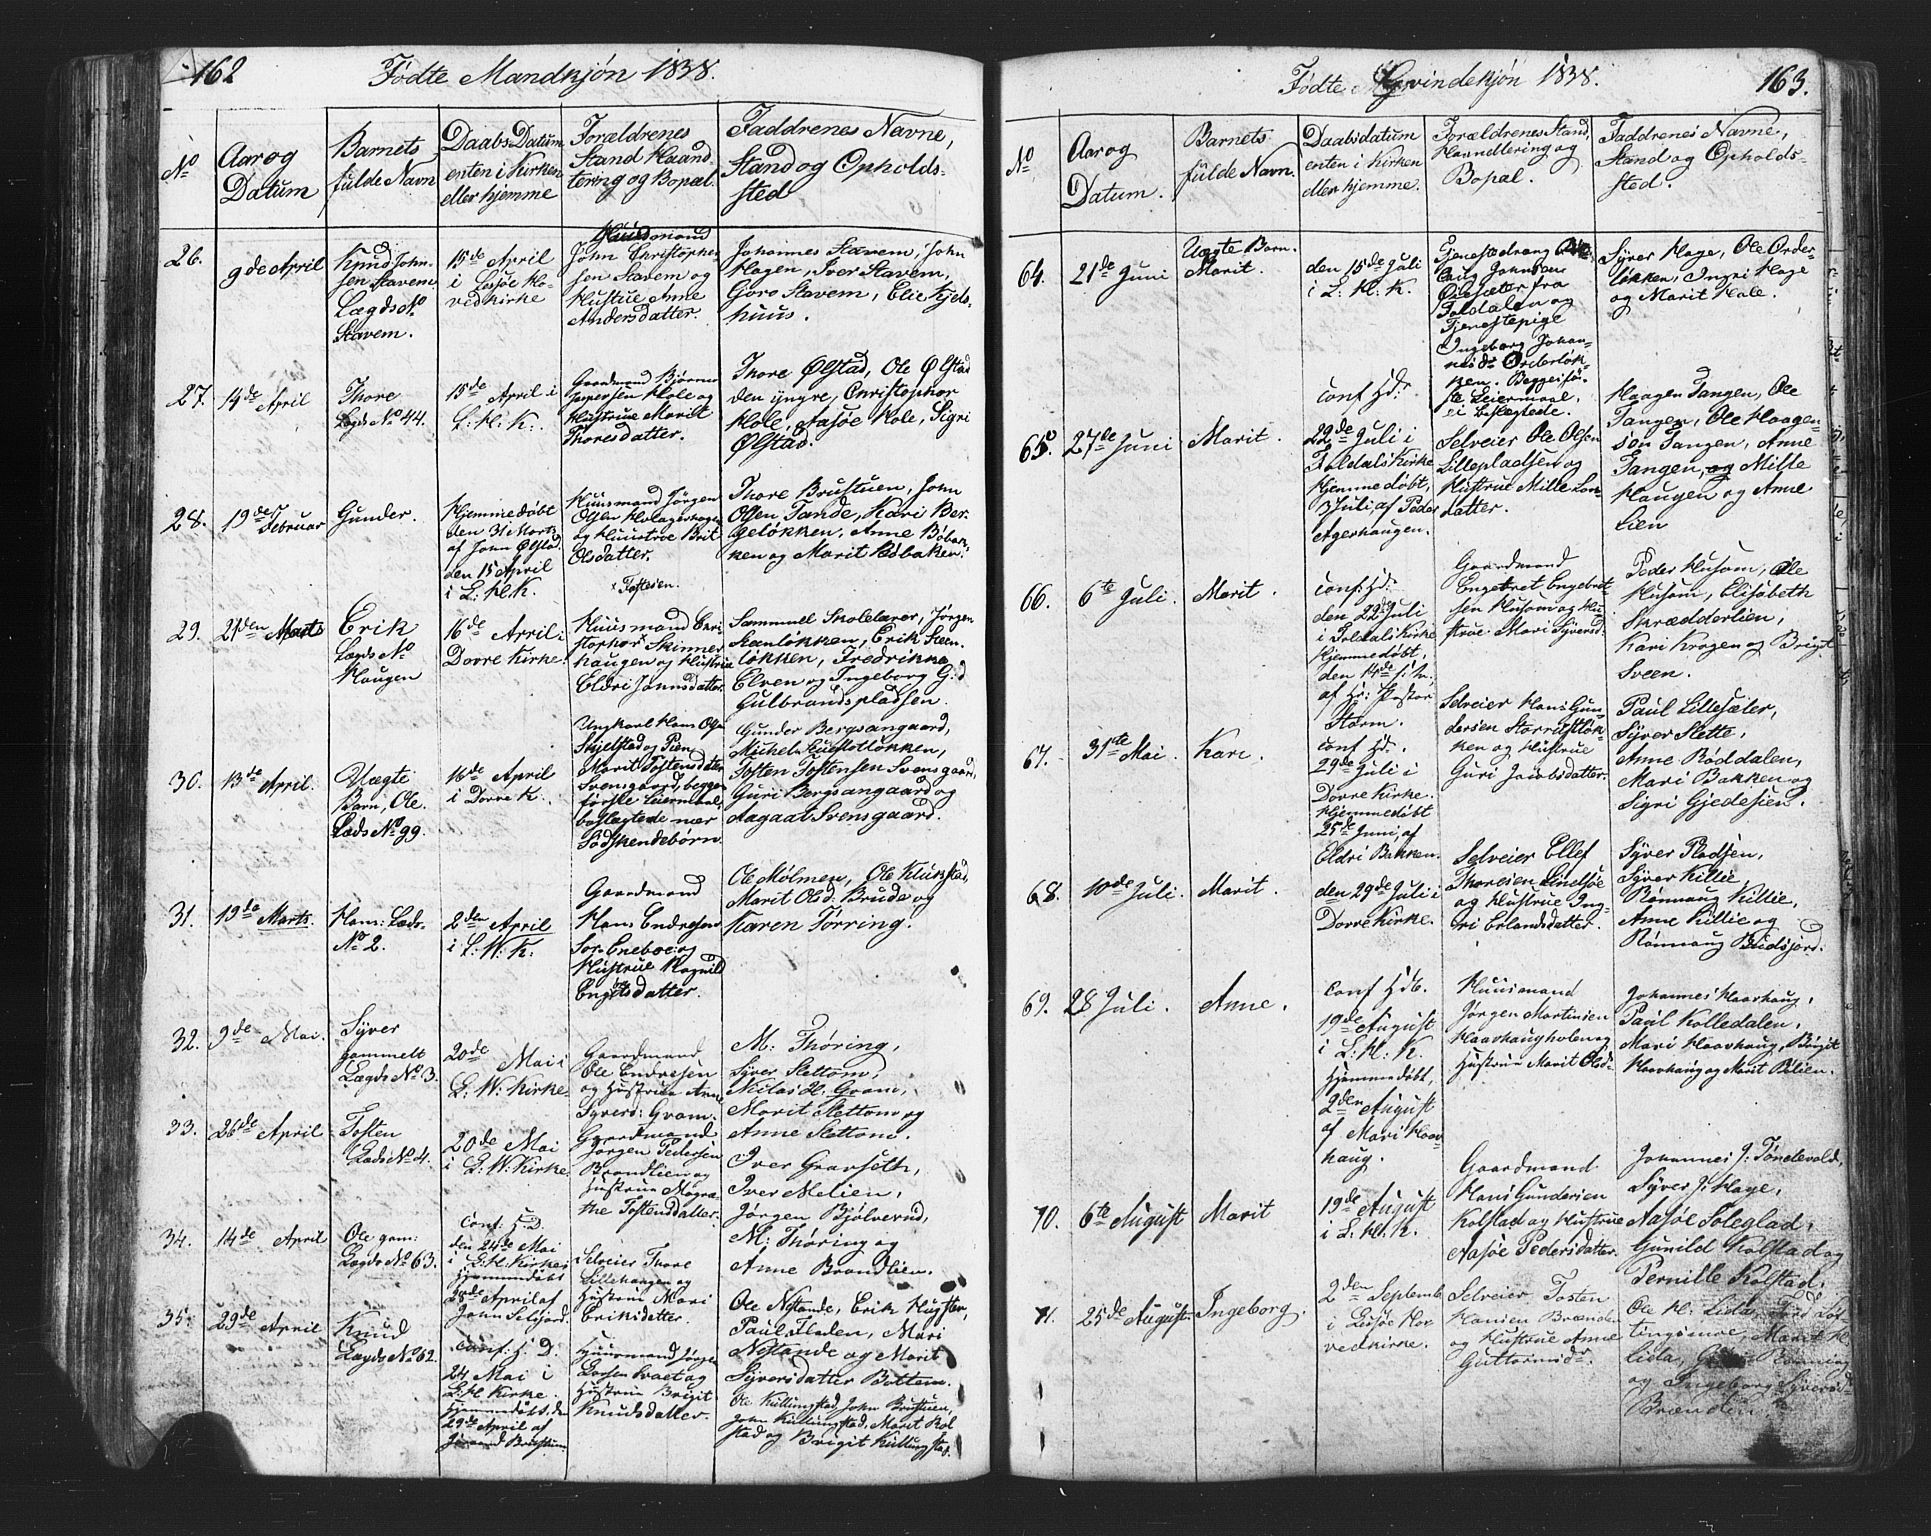 162
Fødte Mandkjøn 1838.
No
Aar og
Datum
Barnets
fulde Navn
Daabs Datum
enten i Kirken
eller hjemme
Forældrenes
Stand Haand-
tering og Bopæl.
Faddrenes Navne,
Stand og Opholds-
sted
26.
9de April
Knud John-
sen Stavem
Lægds No
Stavem.
15de April
i Lessøe Ho-
vedkirke
Huusmand
John Christophe-
sen Stavem og
Hustrue Anne
Andersdatter.
Johannes Stavem, John
Hagen, Iver Stavem,
Goro Stavem, Elie Kjels-
huus.
27.
14de April
Thore
Lægds No 44.
15de April i
L. H. K.
Gaardmand Bjørner
Jespersen Hole og
Hustrue Marit
Thoresdatter.
Thore Ølstad, Ole Ølstad
den yngre, Christophor
Hole, Aasøe Hole, Sigri
Ølstad.
28.
19de Februar
Gunder.
Hjemmedøbt
den 31 Marts
af John Ølstad
den 15 April
i L. H. K.
Huusmand Jørgen
Olsen
og Huustrue Brit
Olsdatter.
Thore Brustuen, John
Olsen Tande, Kari Ber-
geløkken, Anne Bøbak-
ken og Marit Bøbaken.
29.
21den Marts
Erik
Lægds No
Haugen
16de April i
Dovre Kirke.
Toftesen.
Huusmand Chri-
stophor Skinner
haugen og Hustrue
Eldri Jonnsdatter.
Sammuel Skolelærer, Jørgen
Stanløkken, Erik Steen-
løkken, Fredrikke
Elven og Ingeborg G:d
Gulbrandspladsen.
30.
13de April.
Uægte
Barn, Ole.
Læds No 99.
16de April
i Dovre K.
Ungkarl Hans Ols
Skjelstad og Pien
Marit Tostensdatter
Svensgaard, begges
første Leiermaal,
beslægtede nær
Sødskendebørn.
Gunder Bergsangaard,
Michel Leustoløkken,
Tosten Tostensen Svensgaard,
Guri Bergsangaard og
Aagaat Svensgaard.
31.
19de Marts.
Hans: Læds-
No 2.
2den April
i L. W. K.
Gaardmand
Hans Endresen
Sor-Eneboe og
Hustrue Ragnild
Engelsdatter.
Ole Mølmen, Ole Klukstad,
Marit Olsd. Brude og
Karen Tørring.
32.
9de Mai.
Syver
gammelt
Lægds No 3.
20de Mai i
L: W: Kirke.
Gaardmand
Ole Endresen
og Hustrue Anne
Syvers: Gram.
M: Thøring,
Syver Slettom,
Nicolas H: Gram,
Marit Slettom og
Anne Slettom.
33.
26de April
Tosten
Læds No 4.
20de Mai
i L: W: Kirke.
Gaardmand
Jørgen Pedersen
Brandlien og
Hustrue Magre-
the Tostensdatter.
Iver Gravseth,
Iver Melien,
Jørgen Bjølverud,
M: Thøring og
Anne Brandlien.
34.
14de April
Ole gam:
Lægds No 63.
Conf. H. D.
den 24de Mai
i L: H: Kirke
Hjemmedøbt
28de April af
John Seljord.
Selveier Thore
Lillehaugen og
Hustrue Mari
Eriksdatter.
Ole Nstande, Erik Hugsten,
Paul Fladen, Mari
Nstande og Marit
Syversdatter Bottem.
35.
29de April
Knud
Lægds No 62.
Conf: H. D.
24 Mai i
L: H. Kirke.
Hjemmedøbt den
29de April af
Huusmand Jørgen
Larsen Svaet og
Hustrue Brigit
Knudsdatter.
Ole Kullingstad, John Brustuen,
John Kullungstad, Marit Kol-
stad og Brigit Kullungstad.
Fødte Qvindekjøn 1838.
163.
No
Aar og
Datum.
Barnets
fulde Navn.
Daabsdatum
enten i Kirken
eller hjemme.
Forældrenes Stand,
Haandtering og
Bopal.
Faddrenes Navne,
Stand og Opholds-
sted.
64.
21de Juni
Uægte Barn.
Marit.
den 15de Juli
i L: H: K.
Tjenestedreng
Johnsen
fra
Foldalen og
Tjenestepige
Ingeborg Johan-
nesdr Orderløk-
ken. Begges før-
ste Leiermaal,
ei beslægtede.
Syver Hage, Ole Order-
løkken, Ingri Hage
og Marit Hole.
65.
27de Juni
Marit.
Conf Hdr
22de Juli i
Foldals Kirke
Hjemmedøbt,
3 Juli af Peder
Agerhaugen.
Selveier Ole Olsen
Lillepladsen og
Hustrue Mille Lar-
datter.
Haagen Tangen, Ole
Tangen, Ole Haagen-
son Tangen, Anne
Tangen, og Mille
Haugen og Anne
Lien
66.
6te Juli.
Marit.
Conf. Hd:
den 22de Juli
i Foldals Kirke
Hjemmedøbt,
den 14de f: M,
af Hr: Pastor
Storm.
Gaardmand
Engebret Engebret-
sen Husom og Hu-
strue Mari Syversd
Peder Husom, Ole
Husom, Elisabeth
Skrædderlien,
Kari Krogen og Brigt
Sveen.
67.
31te Mai
Kari.
Conf Hd.
29de Juli i
Dovre Kirke.
Hjemmedøbt
25de Juni, af
Eldri Bakken.
Selveier Hans Gun-
dersen Storstløk-
ken og Hustrue
Guri Jacobsdatter.
Paul Lillesæter,
Syver Slette,
Anne Røddalen,
Mari Bakken og
Sigri Gjedesien.
68.
10de Juli.
Marit.
den 29de Juli i
Dovre Kirke.
Selveier Ellef
Thoresen Lindsøe
og Hustrue Ing-
ri Erlandsdatter.
Syver Pladsen,
Syver Killie,
Rønnaug Killie,
Anne Killie og
Rønnaug Budsjord.
69.
28 Juli.
Anne.
Conf Hdb.
19de August
i L: H: K.
Hjemmedøbt,
2den August
af Mari Haav-
haug.
Huusmand
Jørgen Martinsen
Haavhaugholen og
Hustrue Marit Olsd-
Johannes Haavhaug,
Paul Kolledalen,
Mari Haavhaug, Brigit
Haavhaug og Marit Pilien.
70.
6te August
Marit
19de August
i L. H. K.
Gaardmand
Hans Gundersen
Kolstad og Hustrue
Aasøe Pedersdatter.
Johannes J: Tøndevold,
Syver J: Hage,
Aasøe Soleglad,
Gunild Kolstad og
Pernille Kolstad.
71.
25de August
Ingeborg.
2den Septemb
i Lessøe Ho-
vedkirke.
Selveier Tosten
Hansen Brænden
og Hustrue Anne
Guttormsdr.
Ole H: Lida,
Marit H.
Lida,
og Ingeborg Syversd
Brænden.